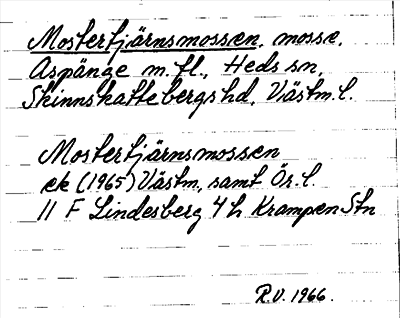 Mostertjärnsmossen, mosse,
Aspänge m.fl., Heds sn,
Skinnskattebergs hd, Västm. l.
Mostertjärnsmossen
ek (1965) Västm., samt Ör. l.
11 F Lindesberg 4 h Krampen Stn
R.V. 1966.